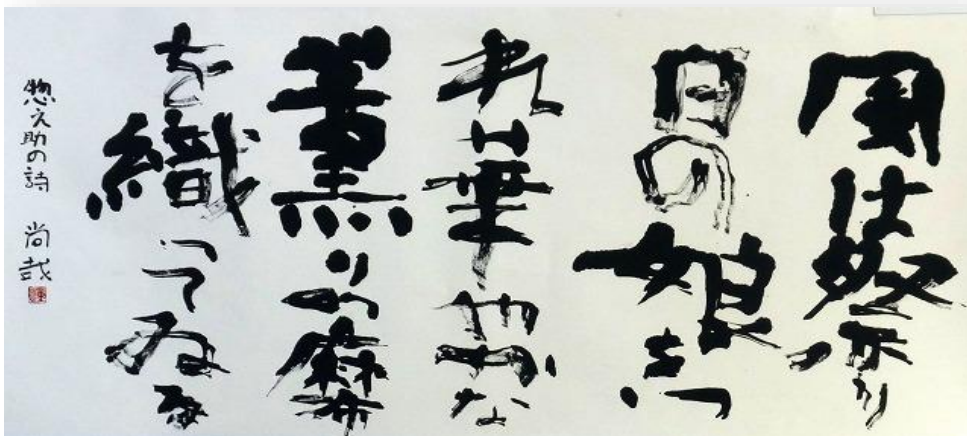 風は祭り
日の娘
れ華やかな
薫りの麻布
を織ってゐる
惣之助の詩 尚哉